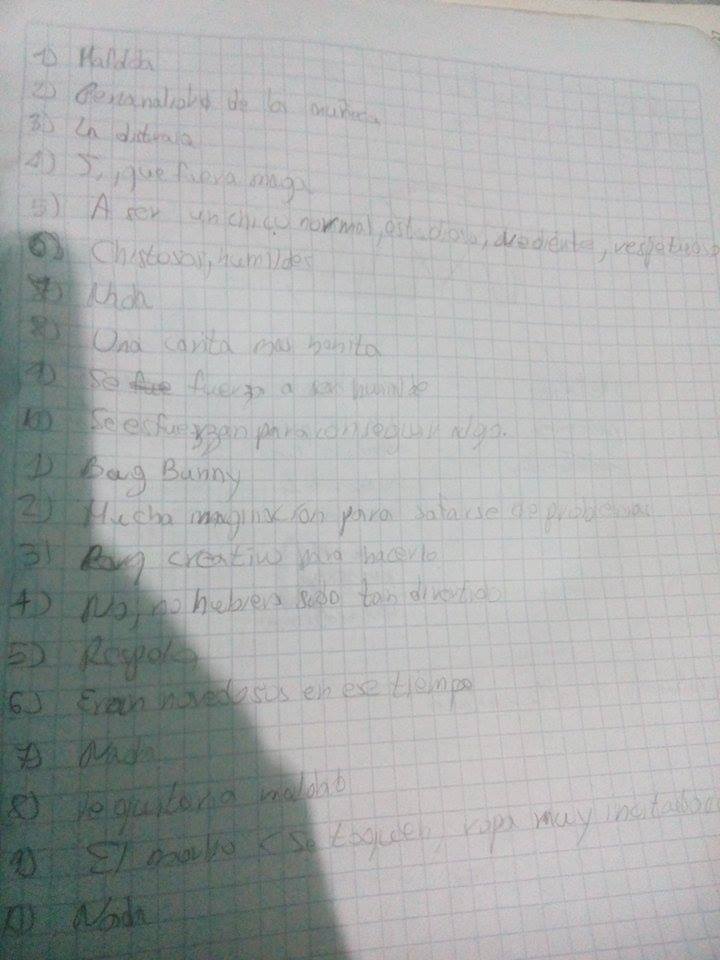 1) Maldda
2) Personalidad de la muñeca
3) La
4) Si, que fuera maga
5) A ser un chico normal, estudioso, respetuoso
6) Chistosas, humildes
7) Nada
8) Una carita mas bonita
9) Se fuerza a ser humilde
10) Se esfuerzan para conseguir algo.
1) Bag Bunny
2) Mucha para de problemas
3) creativo para hacerlo
4) No, no hubiera sido tan divertido
5)
6) Eran novedosos en ese tiempo
7) Nada
8) le quitaria maldad
9) El ropa muy
10) Nada